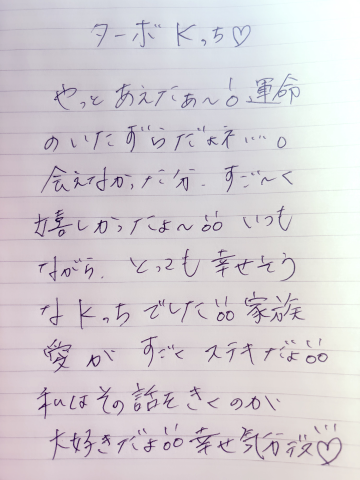 ターボKっち♡
やっとあえたぁ〜!運命
のいたずらだよネ…。
会えなかった分、すご〜く
嬉しかったよ〜!!いつも
ながら、とっても幸せそう
なKっちでした!!家族
愛がすごくステキだよ!!
私はその話をきくのが
大好きだよ!!幸せ気分デス♡